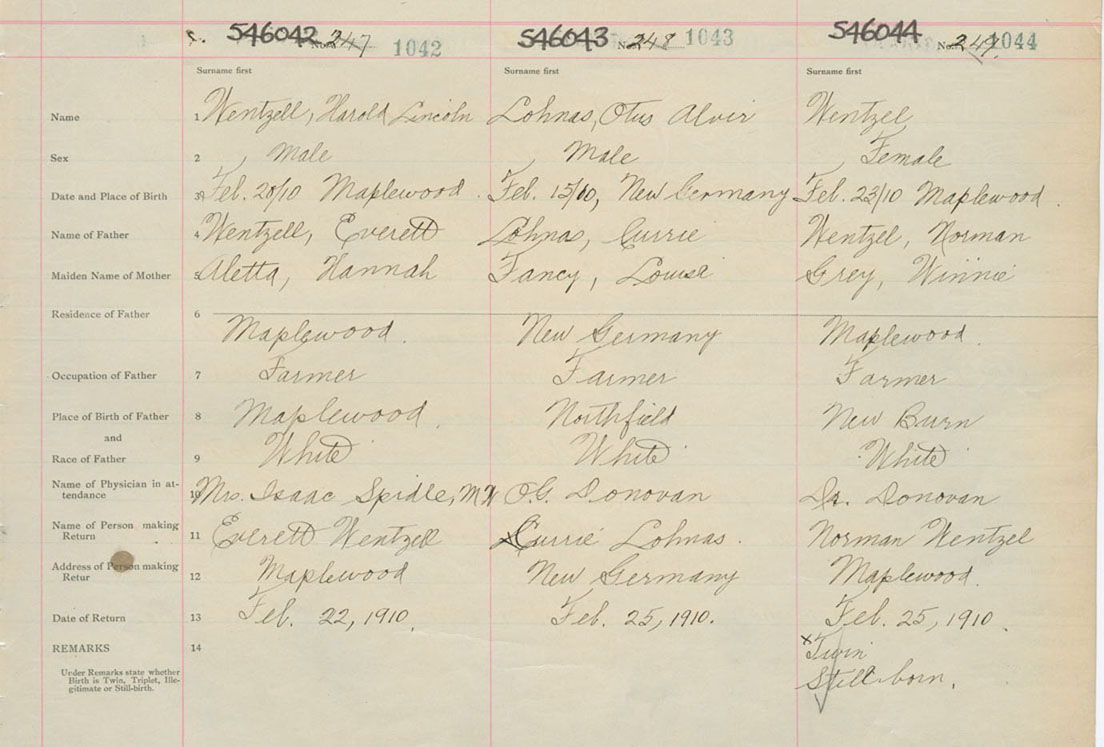 546042 No. 247 1042 546043 No. 248 1043 546044 No. 249 1044
Surname first Surname first Surname first
Name 1 Wentzell, Harold Lincoln Lohnas, Otus Alvir Wentzel
Sex 2 Male Male Female
Date and Place of Birth 3 Feb. 20/10 Maplewood. Feb. 15/10, New Germany Feb. 23/10 Maplewood.
Name of Father 4 Wentzell, Everett Lohnas, Currie Wentzel, Norman
Maiden Name of Mother 5 Aletta, Hannah Fancy, Louisa Grey, Winnie
Residence of Father 6
Maplewood. New Germany Maplewood.
Occupation of Father 7 Farmer Farmer Farmer
Place of Birth of Father 8 Maplewood. Northfield New Burn
and
Race of Father 9 White White White
Name of Physician in at-
tendance 10 Mrs. Isaac Spidle, M W O.G. Donovan Dr. Donovan
Name of Person making
Return 11 Everett Wentzell Currie Lohnas. Norman Wentzel
Address of Person making
Retur 12 Maplewood New Germany Maplewood.
Date of Return 13 Feb. 22, 1910. Feb. 25, 1910. Feb. 25, 1910.
REMARKS 14 x Twin
Under Remarks state whether
Birth is Twin, Triplet, Ille-
gitimate or Still-birth.
Still-born.